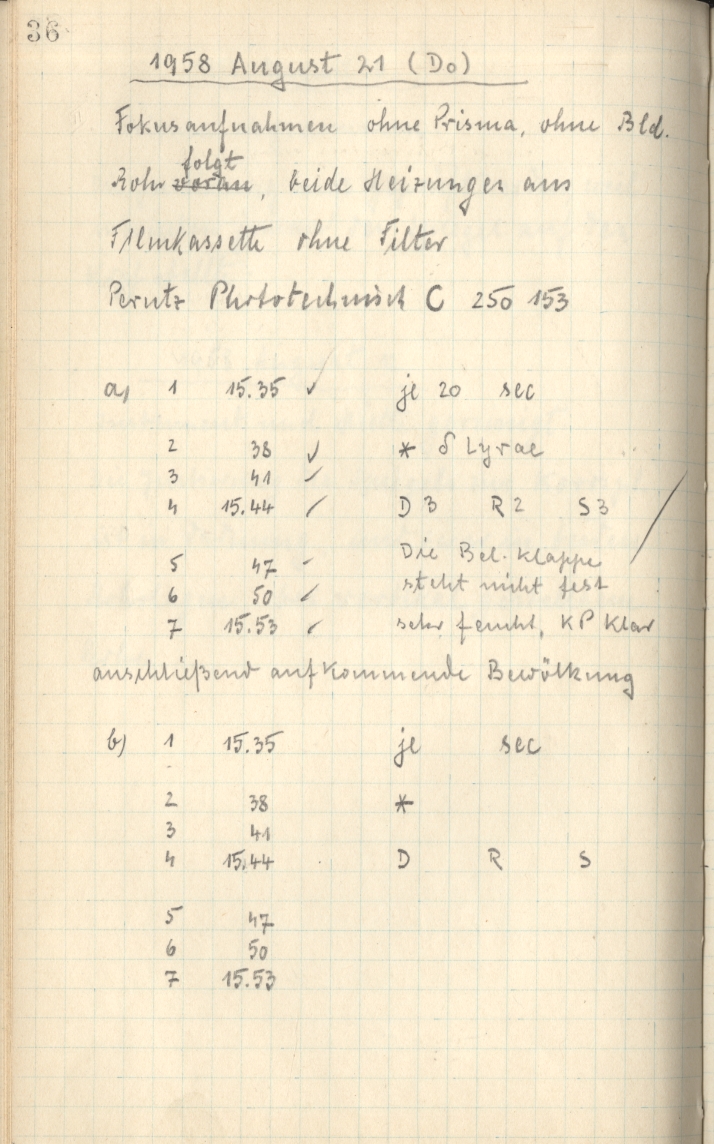 36
1958 August 21 (Do)
Fokusaufnahmen ohne Prisma, ohne Bld.
folgt
Rohr voran, beide Heizungen aus
Filmkassette ohne Filter
Perutz Phototechnisch C 250 153
a) 1 15.35 ✓ je 20 sec
2 38 ✓ * δ Lyrae
3 41 ✓
4 15.44 ✓ D 3 R 2 S 3
Die Bel. Klappe
5 47 ✓
steht nicht fest
6 50 ✓
7 15.53 ✓ sehr feucht, KP Klar
anschließend aufkommende Bewölkung
b) 1 15.35 je sec
2 38 *
3 41
4 15.44 D R S
5 47
6 50
7 15.53